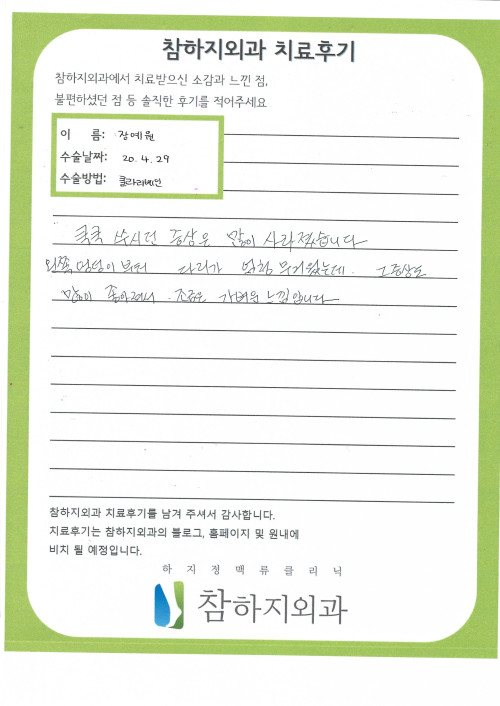 참하지외과 치료후기
참하지외과에서 치료받으신 소감과 느낀 점,
불편하셨던 점 등 솔직한 후기를 적어주세요
이 름: 장예원
수술날짜: 20. 4. 29
수술방법: 클라리베인
쿡쿡 쑤시던 증상은 많이 사라졌습니다
왼쪽 엉덩이 부터 다리가 무거웠는데. 그증상도
많이 좋아져서. 조금은 가벼운 느낌입니다
참하지외과 치료후기를 남겨 주셔서 감사합니다.
치료후기는 참하지외과의 블로그, 홈페이지 및 원내에
비치 될 예정입니다.
하지정맥류클리닉
참하지외과